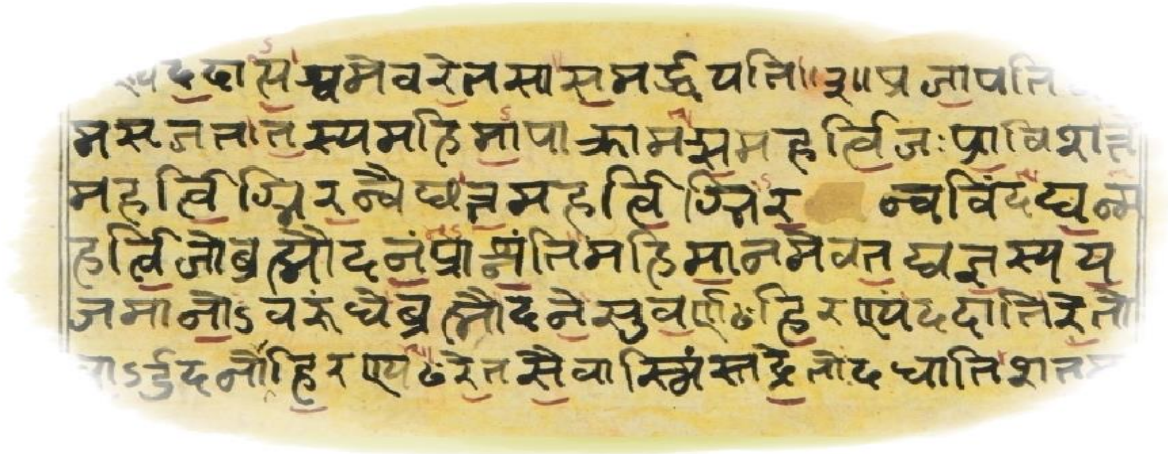 ददात्यश्वमेवरेतसासमर्द्धयति॥३॥प्रजापति
मसृजतातस्यमहिमापाक्रामत्समहर्त्विजःप्राविशत्त
महर्त्विग्भिरन्वैच्छत्तमहर्त्विग्भिर न्वविंदद्यन्म
हर्त्विजोब्रह्मौदनंप्राश्नंतिमहिमानमेवतद्यज्ञस्यय
जमानोऽवरुंधेब्रह्मौदनेसुवर्णᳪहिरण्यंददातिरेतो
वाऽउदनोहिरण्यᳪरेतसैवास्मिंस्तद्रेतोदधातिशतम